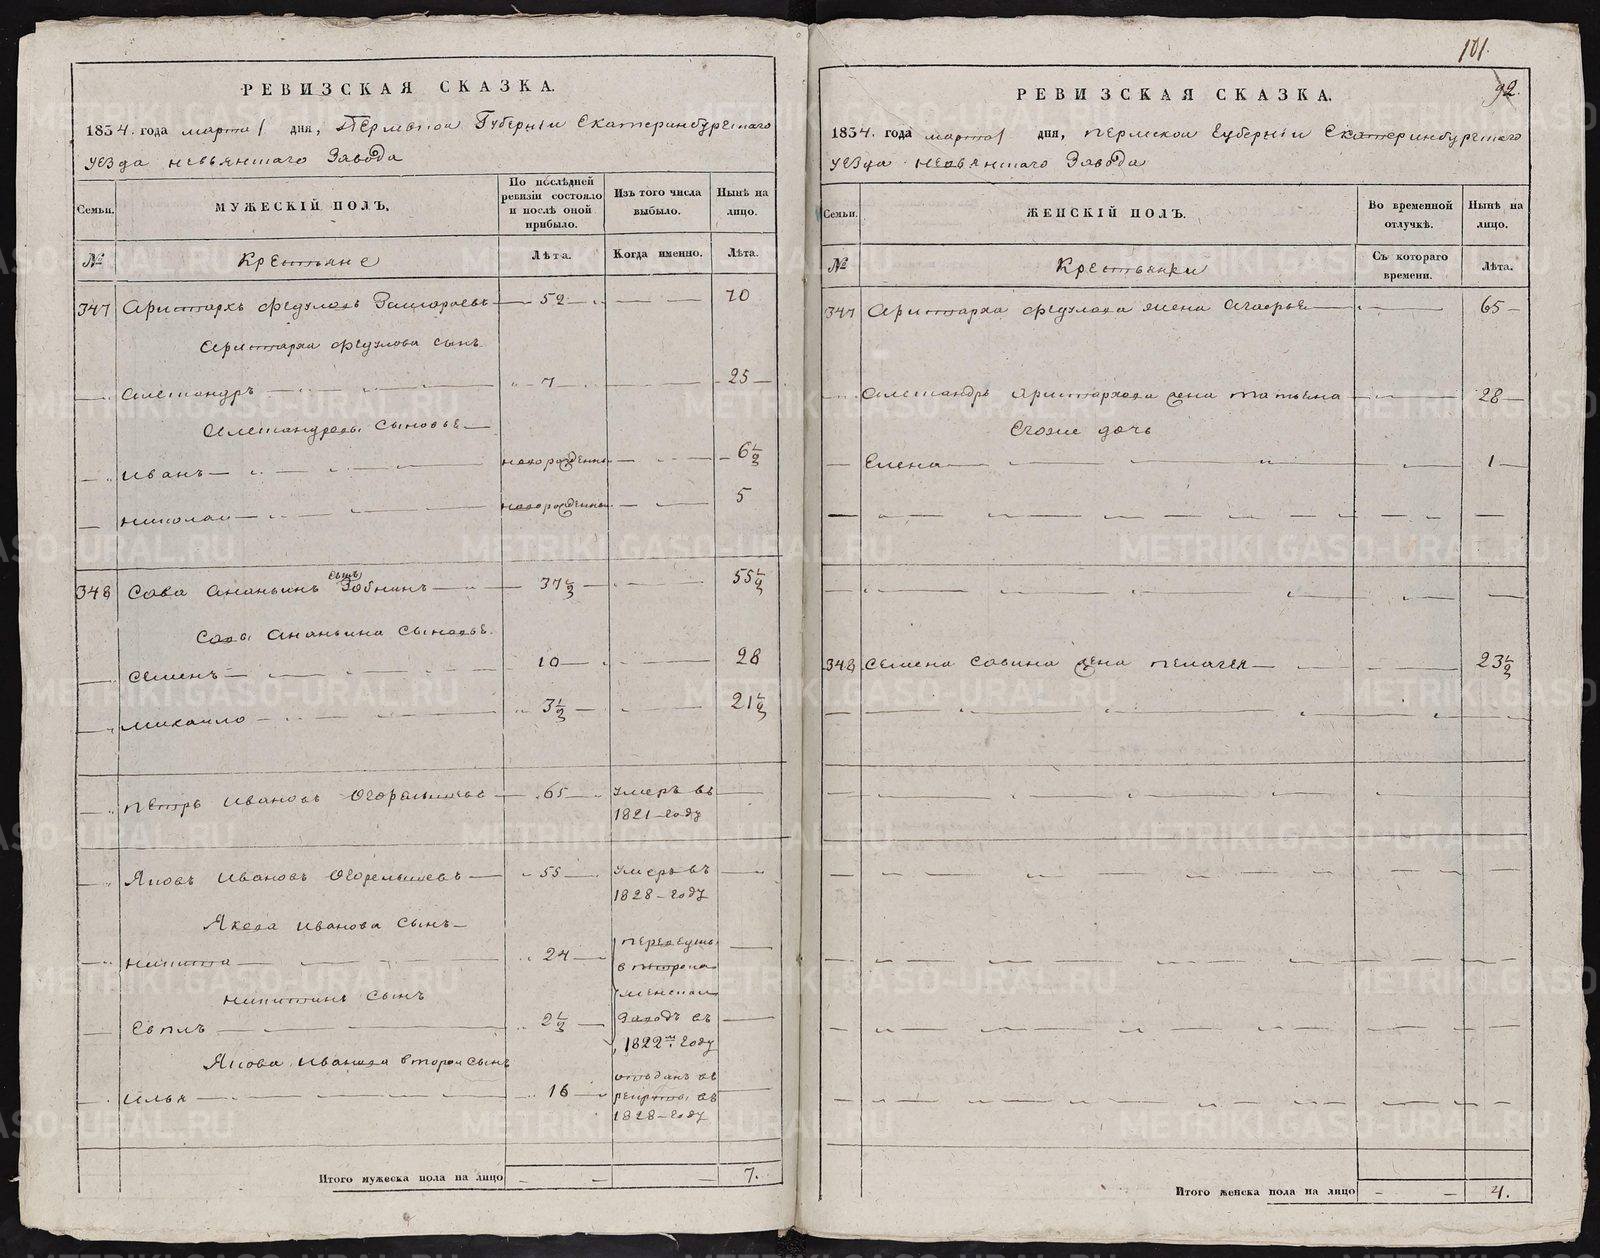 РЕВИЗСКАЯ СКАЗКА.
1834. года марта 1 дня, Пермской Губернiи Екатеринбургскаго
уезда невьянскаго Завода
Семьи. МУЖЕСКIЙ ПОЛЪ. По послѣдней ревизiи состояло и послѣ оной прибыло. Изъ того числа выбыло. Нынѣ на лицо.
№ Крестьяне Лѣта. Когда именно. Лѣта.
347 Аристархъ Федуловъ 52 70
Аристарха Федулова сынъ
Александръ 7 25
Александровы сыновье
Иванъ новорожденны 6½
Николаи новорожденны 5
348 Сава Ананьинъ 37½ 55½
Савы Ананьина сыновье
Семенъ 10 28
Михаило 3½ 21½
Петръ Ивановъ Огорелышевъ 65 умеръ въ
1821 году
Яковъ Ивановъ Огорелышевъ 55 умеръ въ
1828 году
Якова Иванова сынъ
Никита 24
Никитинъ сынъ
Евплъ 2½ Заводъ въ
1822м году
Якова Иванова второи сынъ
Илья 16 отъданъ въ
рекруты въ
1828 году
Итого мужеска пола на лицо 7.
101
92.
РЕВИЗСКАЯ СКАЗКА.
1834. года марта 1 дня, пермской Губернiи Екатеринбургскаго
уезда невьянскаго Завода
Семьи. ЖЕНСКIЙ ПОЛЪ. Во временной отлучкѣ. Нынѣ на лицо.
№ Крестьянки Съ котораго времени. Лѣта.
347 Аристарха Федулова жена Агафья 65
Александра Аристархова жена татьяна 28
Егоже дочь
Елена 1
348 Семена Савина жена пелагея 23½
Итого женска пола на лицо 4.
METRIKI.GASO-URAL.RU